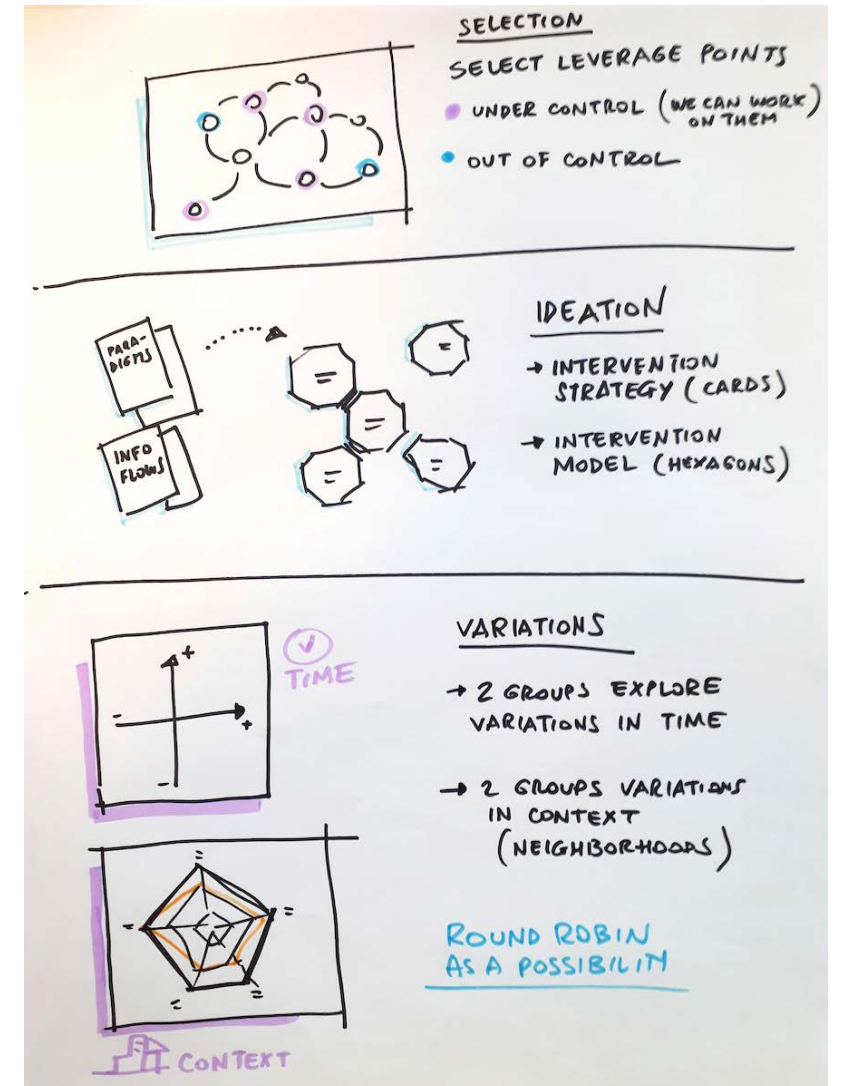 SELECTION
SELECT LEVERAGE POINTS
UNDER CONTROL (WE CAN WORK
ON THEM)
OUT OF CONTROL
PARA-
DIGMS
INFO
FLOWS
IDEATION
→ INTERVENTION
STRATEGY (CARDS)
→ INTERVENTION
MODEL (HEXAGONS)
+
-
+
-
TIME
VARIATIONS
→ 2 GROUPS EXPLORE
VARIATIONS IN TIME
→ 2 GROUPS VARIATIONS
IN CONTEXT
(NEIGHBORHOODS)
ROUND ROBIN
AS A POSSIBILITY
CONTEXT